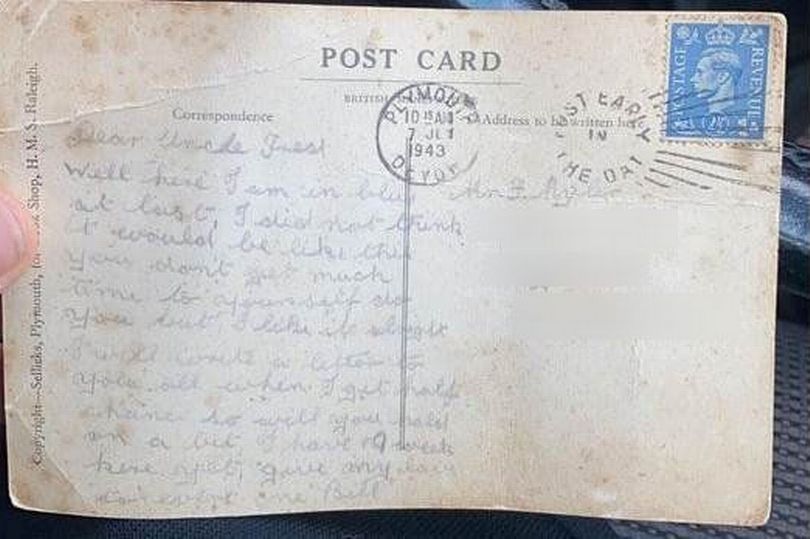 POST CARD
BRITISH
Correspondence
Address to be written he
Copyright—Sellicks, Plymouth, for Shop, H. M. S. Raleigh.
PLYMOUTH
10 15 AM
7 JL
1943
DEVON
POST EARLY
IN
THE DAY
POSTAGE
REVENUE
2½
Dear Uncle
Well here I am in blue
at last, I did not think
it would be like this
you don't get much
time to yourself do
you but I like it alright
I will write a letter to
you all when I get half
chance so will you hold
on a bit I have 9 week
here yet, give my love
to Bill
Mr F.